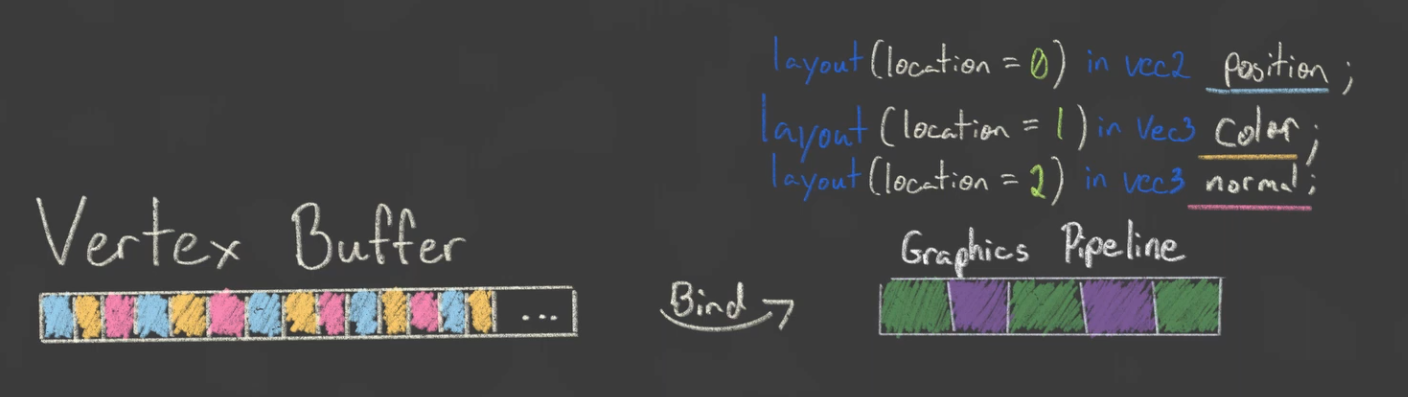 layout (location = 0) in vec2 position;
layout (location = 1) in vec3 color;
layout (location = 2) in vec3 normal;
Vertex Buffer
Graphics Pipeline
Bind
...